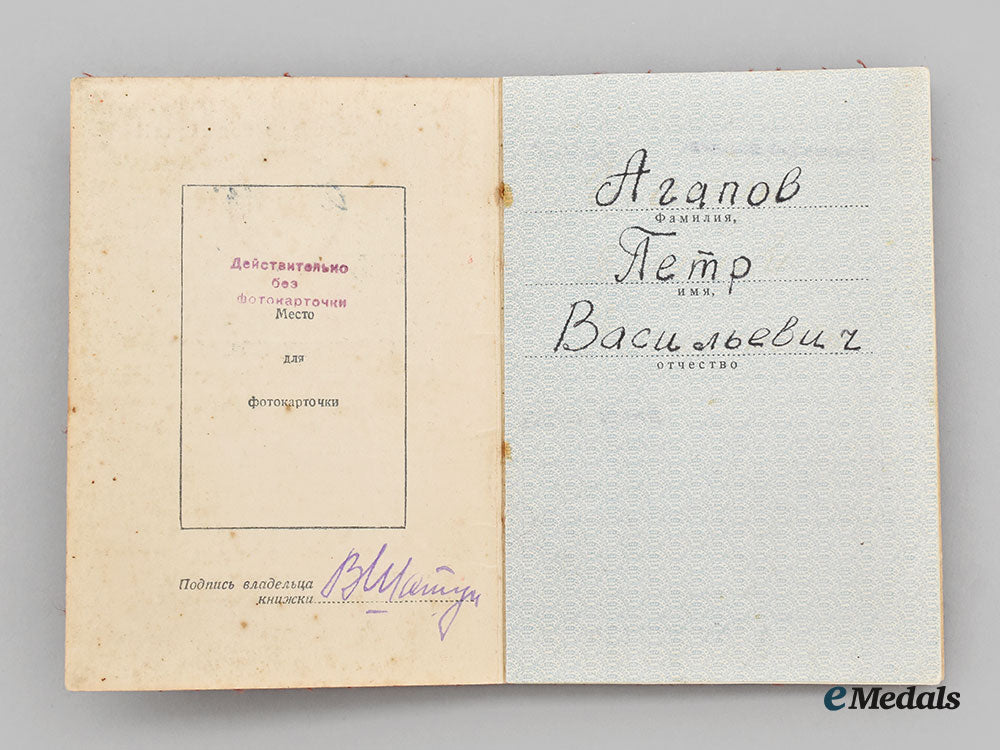 Действительно
без
фотокарточки
Место
для
фотокарточки
Подпись владельца
книжки
Агапов
Фамилия,
Петр
имя,
Васильевич
отчество
eMedals